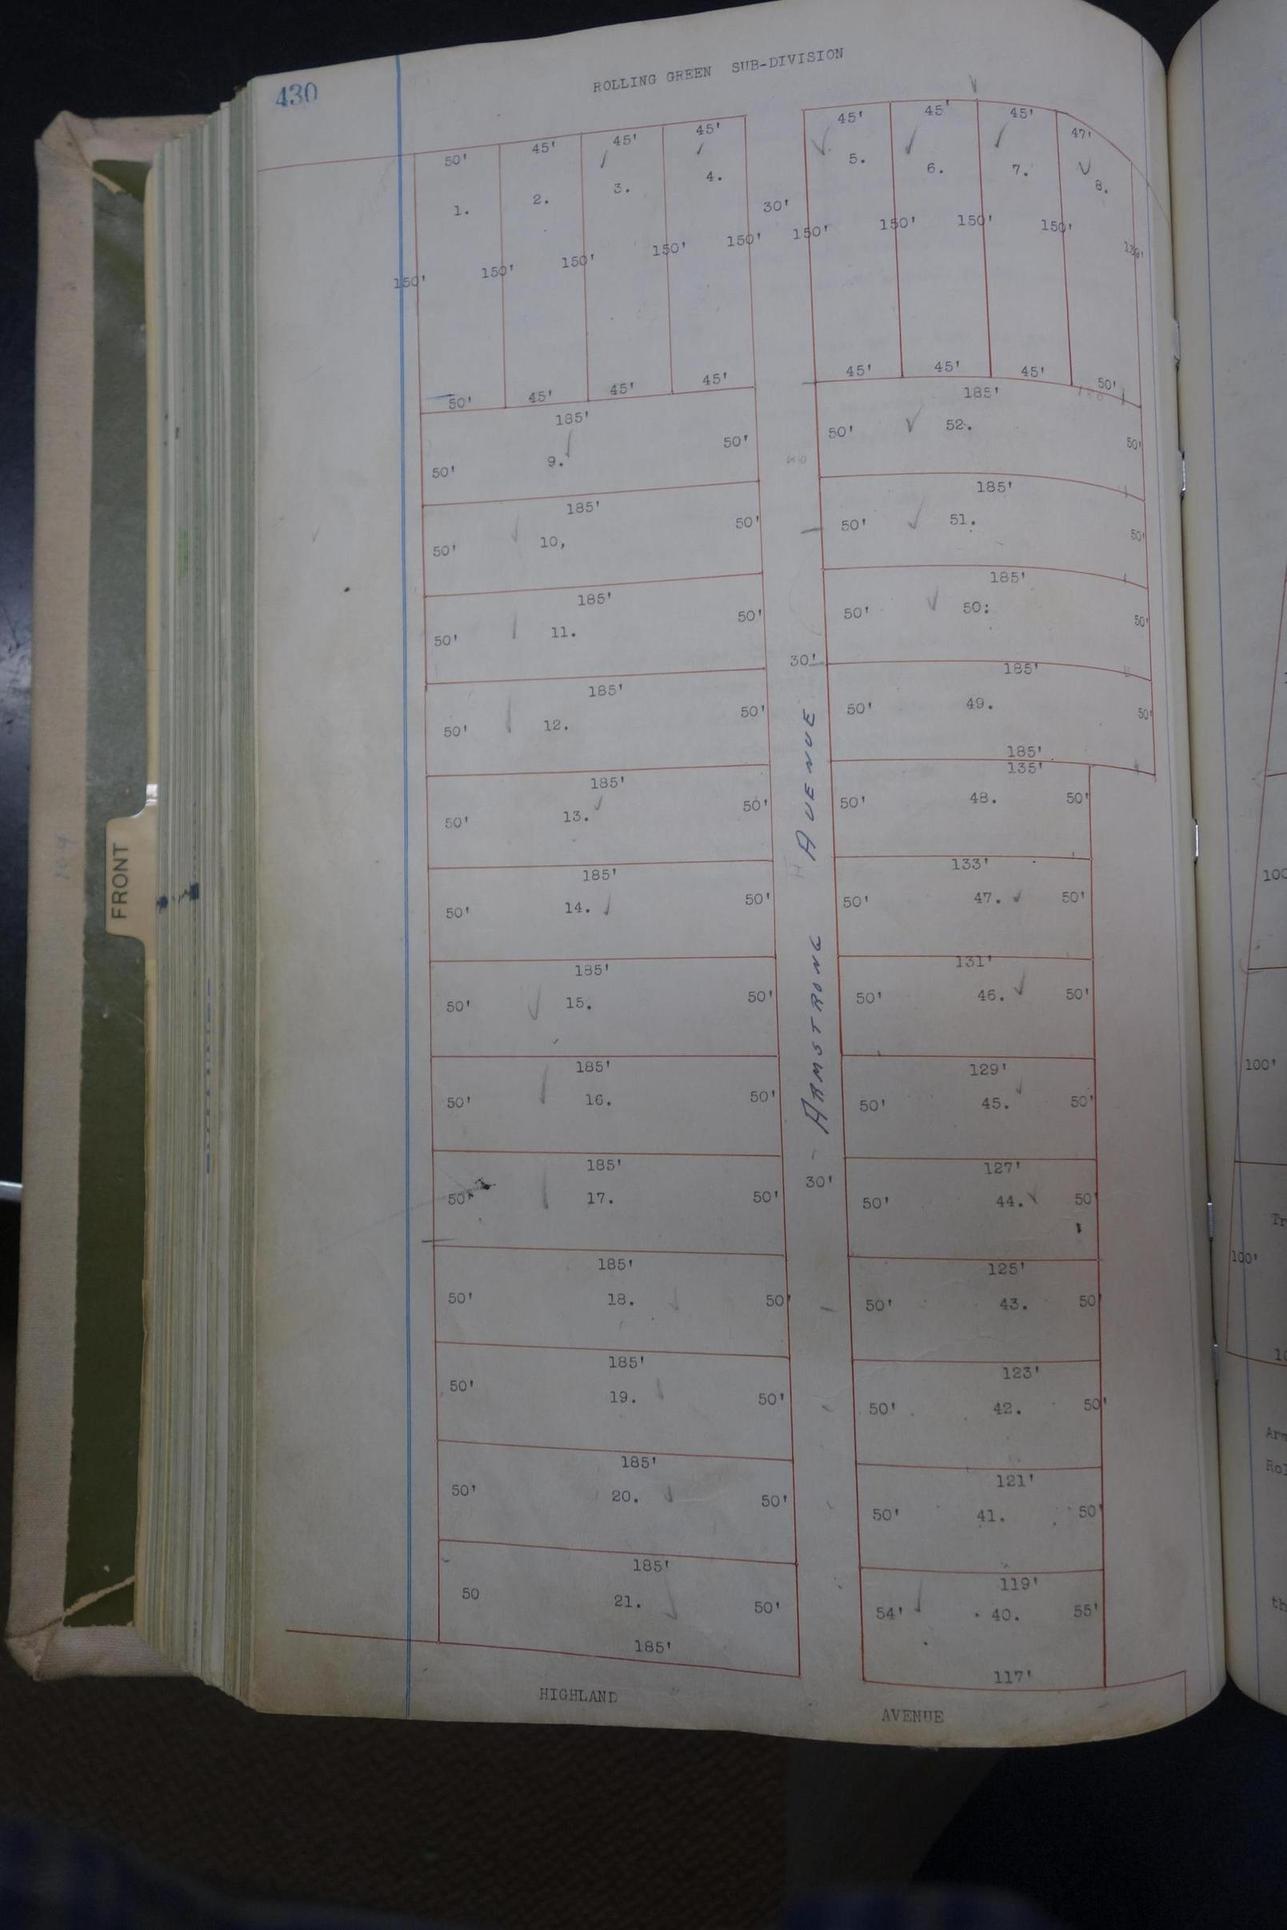 430
ROLLING GREEN SUB-DIVISION
50' 45' 45' 45' 45' 45' 45' 47'
1. 2. 3. 4. 5. 6. 7. 8.
30'
150' 150' 150' 150' 150' 150' 150' 150' 150'
50' 45' 45' 45' 45' 45' 45' 50'
185' 185'
50' 9. 50' 50' 52. 50'
185' 185'
50' 10, 50' 50' 51. 50'
185' 185'
50' 11. 50' 50' 50: 50'
30'
185' 185'
50' 12. 50' 50' 49. 50'
185'
185' 135'
50' 13. 50' 50' 48. 50'
185' 133'
50' 14. 50' 50' 47. 50'
185' 131'
50' 15. 50' 50' 46. 50'
185' 129'
50' 16. 50' 50' 45. 50'
185' 127'
50' 17. 50' 30' 50' 44. 50'
185' 125'
50' 18. 50' 50' 43. 50'
185' 123'
50' 19. 50' 50' 42. 50'
185' 121'
50' 20. 50' 50' 41. 50'
185' 119'
50 21. 50' 54' 40. 55'
185' 117'
ARMSTRONG AVENUE
HIGHLAND AVENUE
FRONT
100'
100'